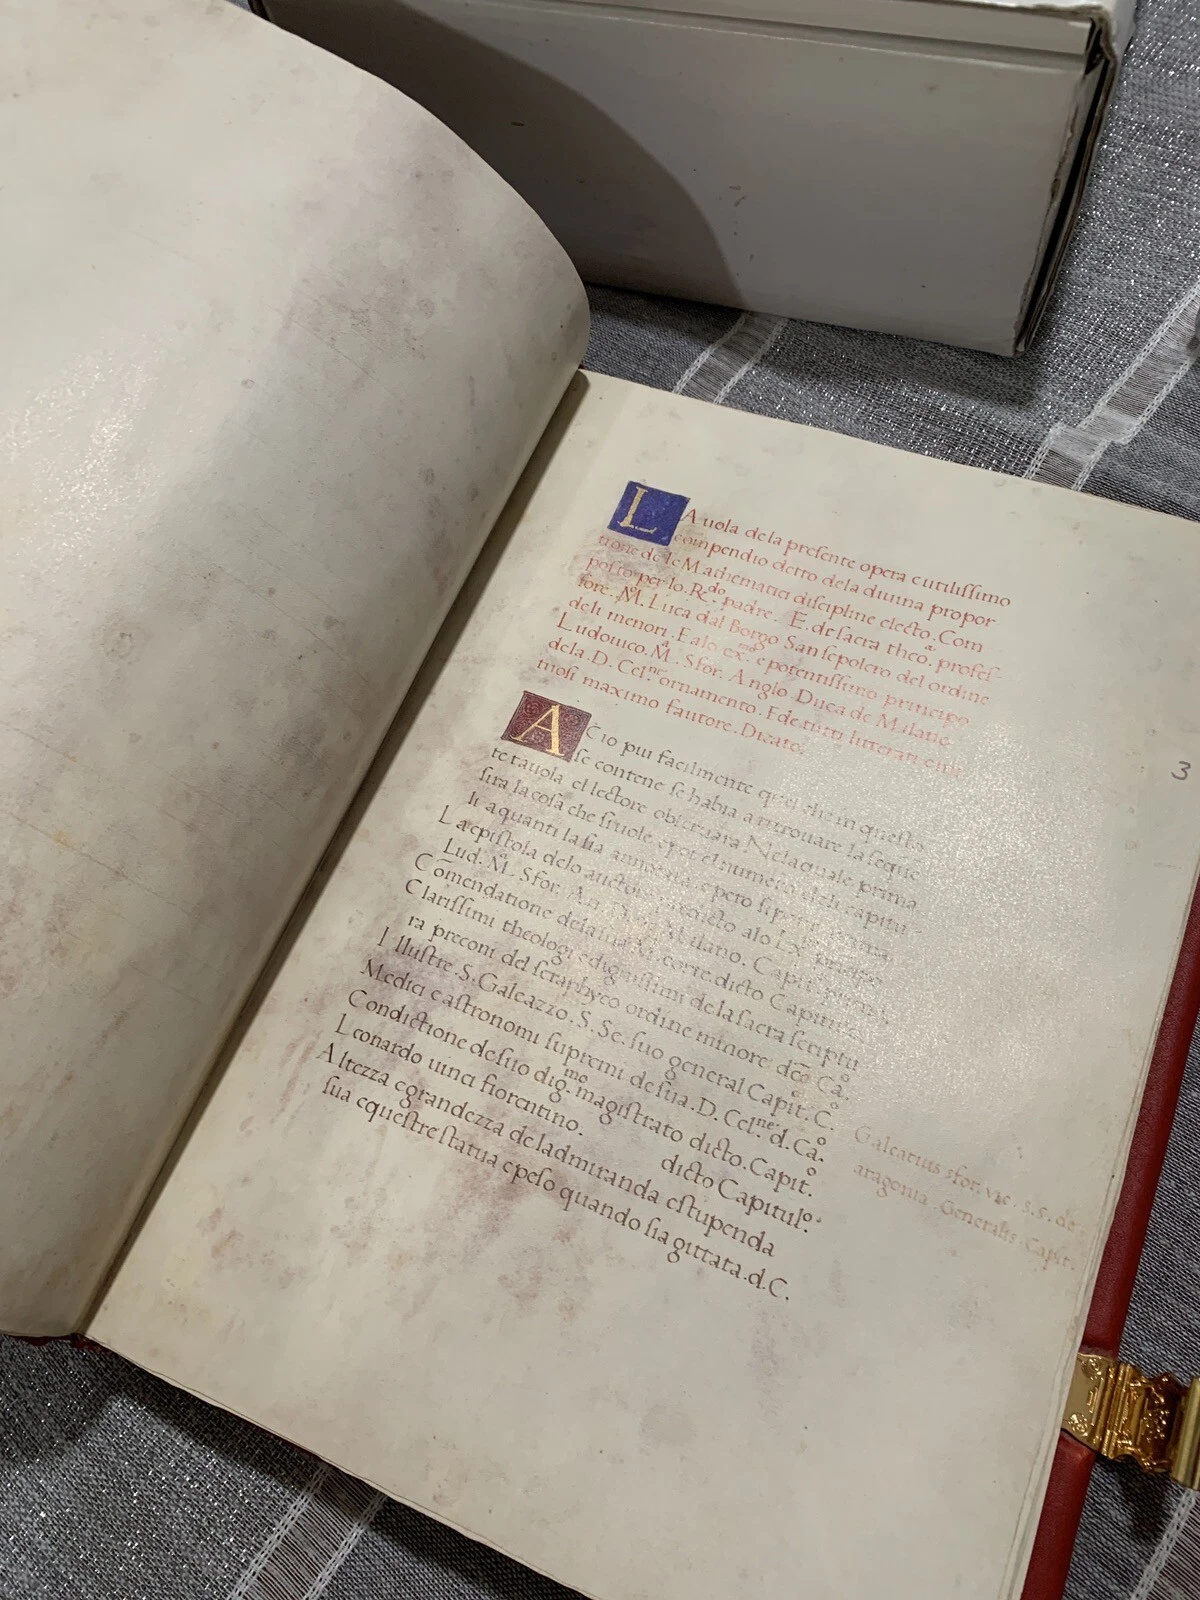 LA uola de la presente opera e utilissimo
compendio detto dela diuina propor
tione de le Mathematici discipline electo. Com
posto per lo. R.do padre.
fore. M. Luca dal Borgo San sepolcro del ordine
deli menori. E alo ex.mo e potentissimo principo
Ludouico. M.a Sfor. Anglo. Duca de Milano.
dela. D. Cel.ne ornamento. E de tutti litterati e uir
tuosi maximo fautore. Dicato.
ACio piu facilmente quel che in questo
se contene se habia a ritrouare la seque
te tauola el lectore obseruara Nela quale prima
sira la cosa che si uole e poi el numero deli capitu
li a quanti la sia
La epistola delo auctore
Lud. M.a Sfor. Milano. Capit.
Cōmendatione dela sua corte. dicto Capitulo.
Clarissimi theologi e dignissimi de la sacra scriptu
ra preconi del seraphyco ordine minore Ca.o
Illustre. S. Galeazzo. S. Se. suo general Capit.o C.o
Medici e astronomi supremi de sua. D. Cel.ne d. Ca.o
Condictione de suo dig.mo magistrato dicto. Capit.o
Leonardo uinci fiorentino. dicto Capitul.o
Altezza e grandezza de la dmiranda e stupenda
sua equestre statua e peso quando sia gittata. d. C.
Galeatius sfor. vic. s.s. de
aragonia. Generalis. Capit.
3